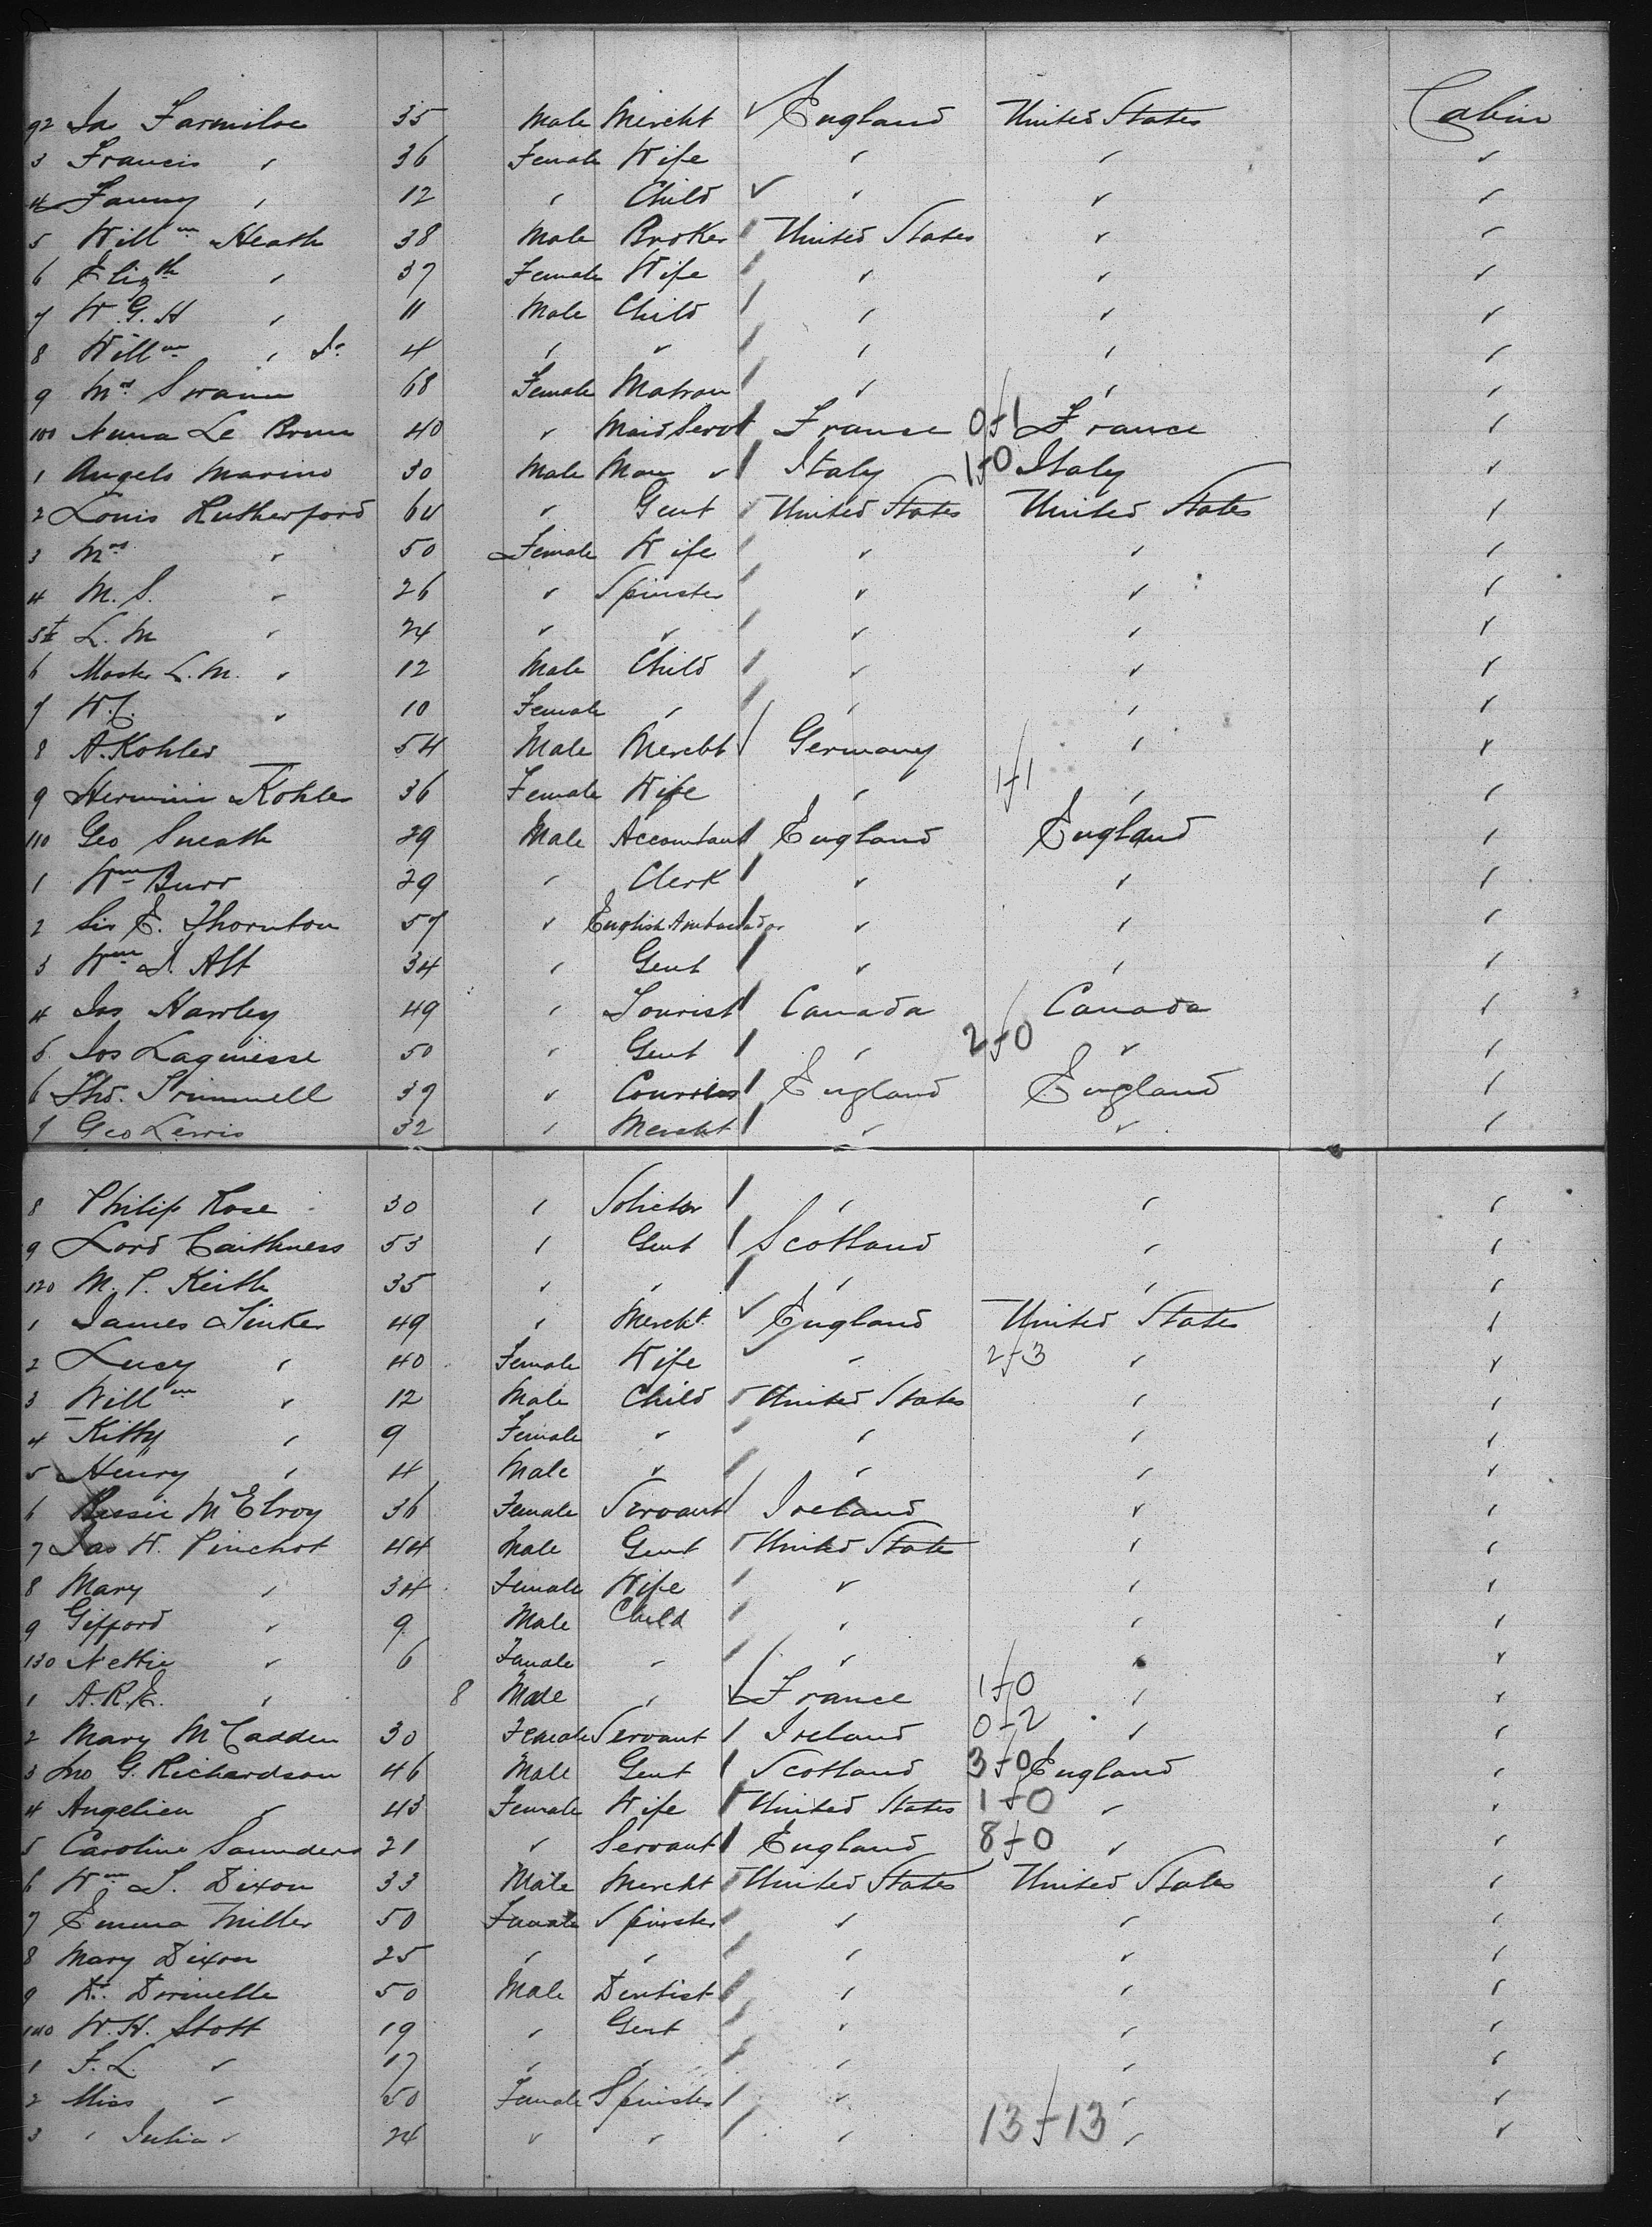 92 Ja Farmiloe 35 Male Mercht ✓ England United States Cabin
3 Francis " 36 Female Wife " " "
4 Fanny " 12 " Child ✓ " " "
5 Willm Heath 38 Male Broker United States " "
6 Elizth " 37 Female Wife " " "
7 W. G. H " 11 Male Child " " "
8 Willm " Jr 4 " " " " "
9 Mrs Swann 68 Female Matron " " "
100 Nuna Le Brun 40 " Maid Servt France 0f1 France "
1 Angelo Marino 30 Male Man " Italy 1f0 Italy "
2 Louis Rutherford 64 " Gent United States United States "
3 Mrs " 50 Female Wife " " "
4 M. S. " 26 " Spinster " " "
5 L. M " 24 " " " " "
6 Master L. M. " 12 Male Child " " "
7 W. C. " 10 Female " " " "
8 A. Kohler 54 Male Mercht Germany " "
9 Hermini Kohler 36 Female Wife " 1f1 " "
110 Geo Sneath 29 Male Accountant England England "
1 Wm Burr 29 " Clerk " " "
2 Sir E. Thornton 57 " English Ambassador " " "
3 Wm J. Alt 34 " Gent " " "
4 Jas Hawley 49 " Tourist Canada Canada "
5 Jos Laginesse 50 " Gent " 2f0 " "
6 Tho. Trimmell 39 " Courier England England "
7 Geo Lewis 32 " Mercht " " "
8 Philip Rose 30 " Solicitor " " "
9 Lord Caithness 53 " Gent Scotland " "
120 M. P. Keith 35 " " " " "
1 James Tinker 49 " Mercht ✓ England United States "
2 Lucy " 40 Female Wife ✓ " 2f3 " "
3 Willm " 12 Male Child United States " "
4 Kitty " 9 Female " " " "
5 Henry " 4 Male " " " "
6 Bessie McElroy 36 Female Servant Ireland " "
7 Jas W. Pinchot 44 Male Gent United State " "
8 Mary " 34 Female Wife " " "
9 Gifford " 9 Male Child " " "
130 Nettie " 6 Female " " " "
1 A. R. E. " 8 Male " France 1f0 " "
2 Mary McCadden 30 Female Servant Ireland 0f2 " "
3 Jno G. Richardson 46 Male Gent Scotland 3f0 England "
4 Angelien " 43 Female Wife United States 1f0 " "
5 Caroline Saunders 21 " Servant England 8f0 " "
6 Wm S. Dixon 33 Male Mercht United States United States "
7 Emma Miller 50 Female Spinster " " "
8 Mary Dixon 25 " " " " "
9 Dr. 50 Male Dentist " " "
140 W. H. Stott 19 " Gent " " "
1 F. L. " 17 " " " " "
2 Miss " 50 Female Spinster " " "
3 " Julia " 24 " " " 13f13 " "